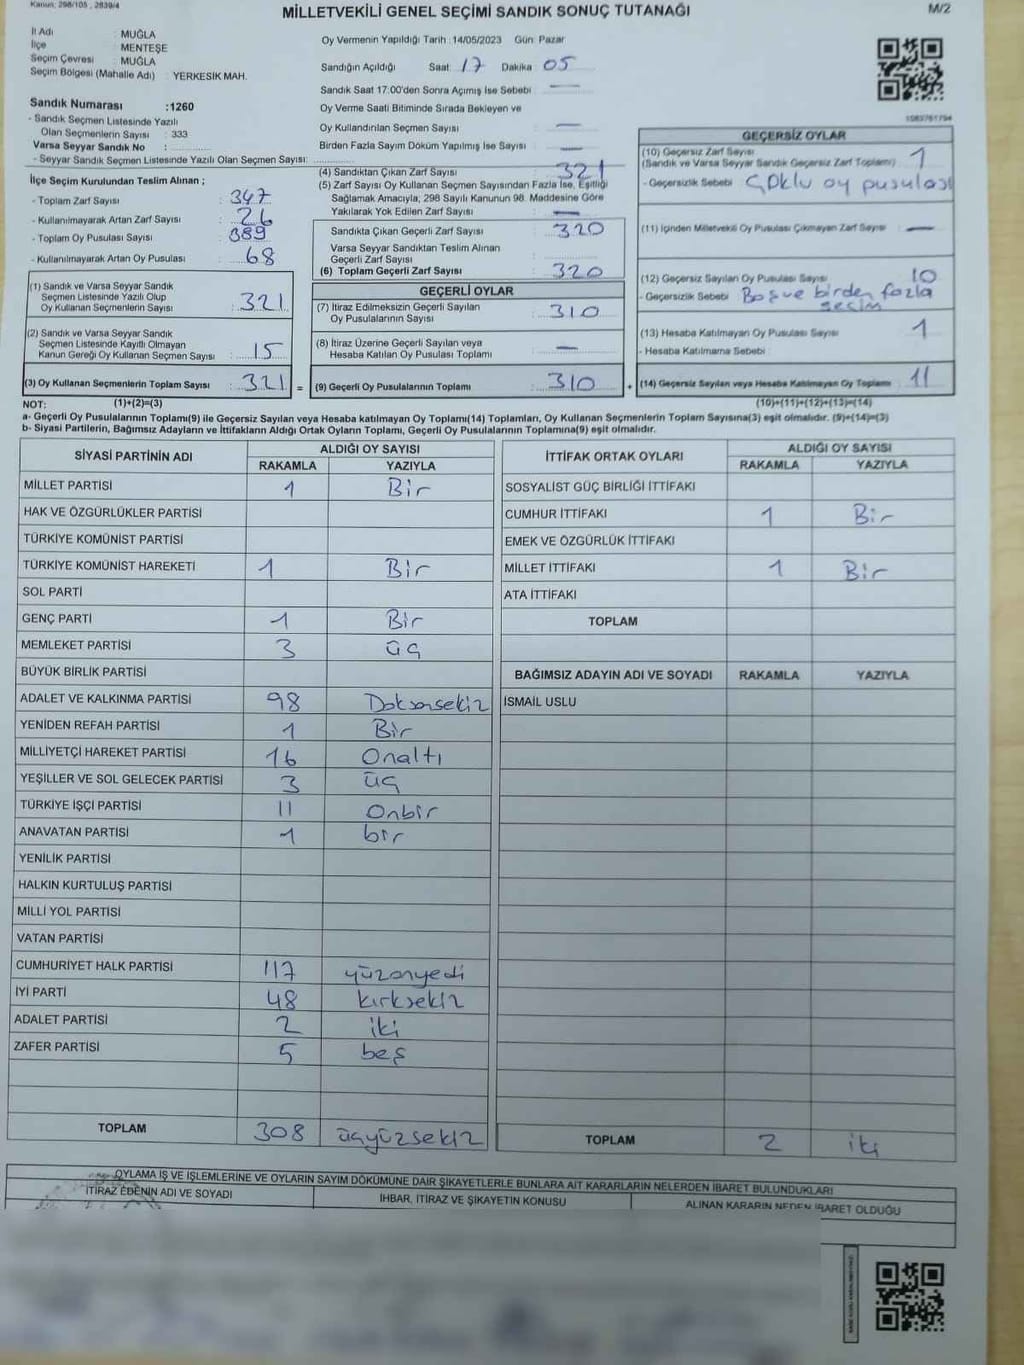 Kanun: 298/105 , 2839/4
MİLLETVEKİLİ GENEL SEÇİMİ SANDIK SONUÇ TUTANAĞI
M/2
İl Adı : MUĞLA
İlçe : MENTEŞE
Seçim Çevresi : MUĞLA
Seçim Bölgesi (Mahalle Adı) : YERKESİK MAH.
Sandık Numarası :1260
- Sandık Seçmen Listesinde Yazılı
Olan Seçmenlerin Sayısı : 333
Varsa Seyyar Sandık No :
- Seyyar Sandık Seçmen Listesinde Yazılı Olan Seçmen Sayısı:
Oy Vermenin Yapıldığı Tarih :14/05/2023 Gün: Pazar
Sandığın Açıldığı Saat: 17 Dakika 05
Sandık Saat 17:00'den Sonra Açımış İse Sebebi —
Oy Verme Saati Bitiminde Sırada Bekleyen ve
Oy Kullandırılan Seçmen Sayısı —
Birden Fazla Sayım Döküm Yapılmış İse Sayısı —
1083761794
İlçe Seçim Kurulundan Teslim Alınan ;
- Toplam Zarf Sayısı : 347
- Kullanılmayarak Artan Zarf Sayısı : 26
- Toplam Oy Pusulası Sayısı : 389
- Kullanılmayarak Artan Oy Pusulası : 68
(1) Sandık ve Varsa Seyyar Sandık
Seçmen Listesinde Yazılı Olup
Oy Kullanan Seçmenlerin Sayısı : 321
(2) Sandık ve Varsa Seyyar Sandık
Seçmen Listesinde Kayıtlı Olmayan
Kanun Gereği Oy Kullanan Seçmen Sayısı : 15
(3) Oy Kullanan Seçmenlerin Toplam Sayısı : 321 =
(4) Sandıktan Çıkan Zarf Sayısı : 321
(5) Zarf Sayısı Oy Kullanan Seçmen Sayısından Fazla İse, Eşitliği
Sağlamak Amacıyla; 298 Sayılı Kanunun 98. Maddesine Göre
Yakılarak Yok Edilen Zarf Sayısı : —
Sandıkta Çıkan Geçerli Zarf Sayısı : 320
Varsa Seyyar Sandıktan Teslim Alınan
Geçerli Zarf Sayısı :
(6) Toplam Geçerli Zarf Sayısı : 320
GEÇERLİ OYLAR
(7) İtiraz Edilmeksizin Geçerli Sayılan
Oy Pusulalarının Sayısı : 310
(8) İtiraz Üzerine Geçerli Sayılan veya
Hesaba Katılan Oy Pusulası Toplamı : —
(9) Geçerli Oy Pusulalarının Toplamı : 310 +
GEÇERSİZ OYLAR
(10) Geçersiz Zarf Sayısı
(Sandık ve Varsa Seyyar Sandık Geçersiz Zarf Toplamı) : 1
- Geçersizlik Sebebi Çoklu oy pusulası
(11) İçinden Milletvekili Oy Pusulası Çıkmayan Zarf Sayısı : —
(12) Geçersiz Sayılan Oy Pusulası Sayısı : 10
- Geçersizlik Sebebi Boş ve birden fazla
seçim
(13) Hesaba Katılmayan Oy Pusulası Sayısı : 1
- Hesaba Katılmama Sebebi
(14) Geçersiz Sayılan veya Hesaba Katılmayan Oy Toplamı : 11
NOT: (1)+(2)=(3)
(10)+(11)+(12)+(13)=(14)
a- Geçerli Oy Pusulalarının Toplamı(9) ile Geçersiz Sayılan veya Hesaba katılmayan Oy Toplamı(14) Toplamları, Oy Kullanan Seçmenlerin Toplam Sayısına(3) eşit olmalıdır. (9)+(14)=(3)
b- Siyasi Partilerin, Bağımsız Adayların ve İttifakların Aldığı Ortak Oyların Toplamı, Geçerli Oy Pusulalarının Toplamına(9) eşit olmalıdır.
SİYASİ PARTİNİN ADI ALDIĞI OY SAYISI
RAKAMLA YAZIYLA
MİLLET PARTİSİ 1 Bir
HAK VE ÖZGÜRLÜKLER PARTİSİ
TÜRKİYE KOMÜNİST PARTİSİ
TÜRKİYE KOMÜNİST HAREKETİ 1 Bir
SOL PARTİ
GENÇ PARTİ 1 Bir
MEMLEKET PARTİSİ 3 üç
BÜYÜK BİRLİK PARTİSİ
ADALET VE KALKINMA PARTİSİ 98 Doksansekiz
YENİDEN REFAH PARTİSİ 1 Bir
MİLLİYETÇİ HAREKET PARTİSİ 16 Onaltı
YEŞİLLER VE SOL GELECEK PARTİSİ 3 üç
TÜRKİYE İŞÇİ PARTİSİ 11 Onbir
ANAVATAN PARTİSİ 1 bir
YENİLİK PARTİSİ
HALKIN KURTULUŞ PARTİSİ
MİLLİ YOL PARTİSİ
VATAN PARTİSİ
CUMHURİYET HALK PARTİSİ 117 yüzonyedi
İYİ PARTİ 48 kırksekiz
ADALET PARTİSİ 2 iki
ZAFER PARTİSİ 5 beş
TOPLAM 308 üçyüzsekiz
İTTİFAK ORTAK OYLARI ALDIĞI OY SAYISI
RAKAMLA YAZIYLA
SOSYALİST GÜÇ BİRLİĞİ İTTİFAKI
CUMHUR İTTİFAKI 1 Bir
EMEK VE ÖZGÜRLÜK İTTİFAKI
MİLLET İTTİFAKI 1 Bir
ATA İTTİFAKI
TOPLAM
BAĞIMSIZ ADAYIN ADI VE SOYADI RAKAMLA YAZIYLA
İSMAİL USLU
TOPLAM 2 iki
OYLAMA İŞ VE İŞLEMLERİNE VE OYLARIN SAYIM DÖKÜMÜNE DAİR ŞİKAYETLERLE BUNLARA AİT KARARLARIN NELERDEN İBARET BULUNDUKLARI
İTİRAZ EDENİN ADI VE SOYADI IHBAR, İTİRAZ VE ŞİKAYETİN KONUSU ALINAN KARARIN NEDEN İBARET OLDUĞU